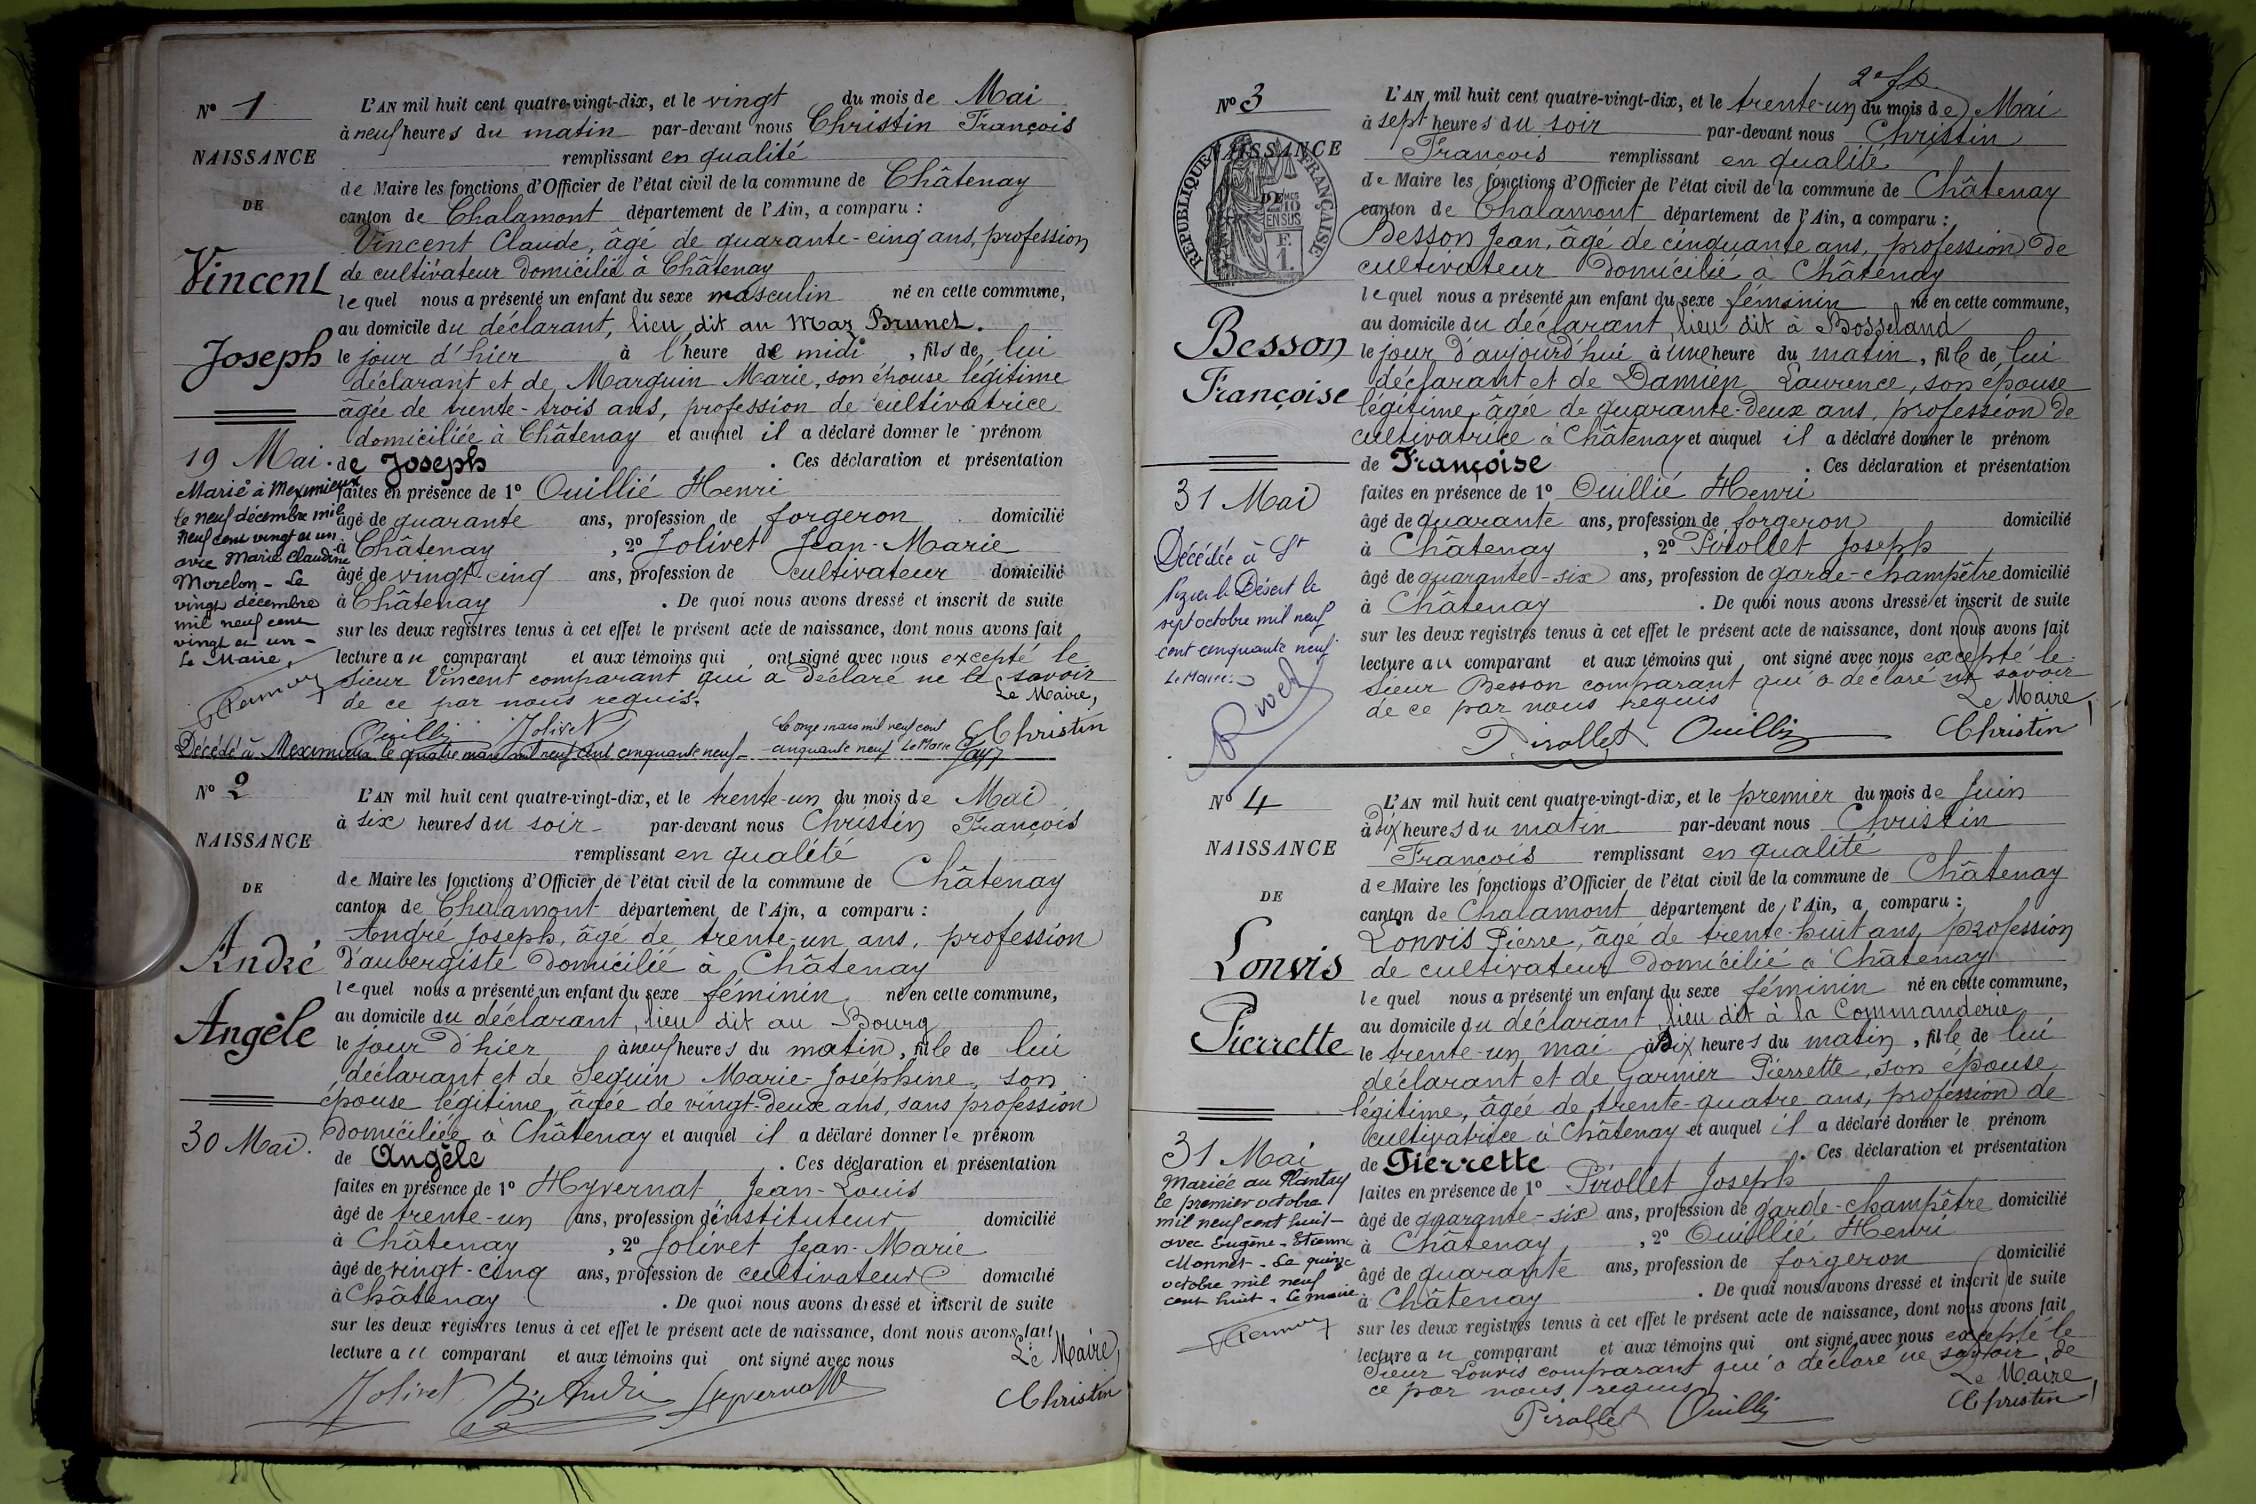 N° 1
NAISSANCE
DE
Vincent
Joseph
19 Mai.
Marié à Meximieux
le neuf décembre mil
neuf cent vingt et un
avec Marie Claudine
Morelon - Le
vingt décembre
mil neuf cent
vingt et un -
Le Maire,
L'AN mil huit cent quatre-vingt-dix, et le vingt du mois de Mai
à neuf heures du matin par-devant nous Christin François
remplissant en qualité
de Maire les fonctions d'Officier de l'état civil de la commune de Châtenay
canton de Chalamont département de l'Ain, a comparu :
Vincent Claude, âgé de quarante-cinq ans, profession
de cultivateur domicilié à Châtenay
lequel nous a présenté un enfant du sexe masculin né en cette commune,
au domicile du déclarant, lieu dit au Mas Brunet.
le jour d'hier à l'heure de midi, fils de lui
déclarant et de Marguin Marie, son épouse légitime
âgée de trente-trois ans, profession de cultivatrice
domiciliée à Châtenay et auquel il a déclaré donner le prénom
de Joseph . Ces déclaration et présentation
faites en présence de 1° Ouillié Henri
âgé de quarante ans, profession de forgeron domicilié
à Châtenay , 2° Jolivet Jean-Marie
âgé de vingt-cinq ans, profession de cultivateur domicilié
à Châtenay . De quoi nous avons dressé et inscrit de suite
sur les deux registres tenus à cet effet le présent acte de naissance, dont nous avons fait
lecture au comparant et aux témoins qui ont signé avec nous excepté le
sieur Vincent comparant qui a déclaré ne le savoir
de ce par nous requis.
Le Maire,
Ouillié Jolivet Christin
Décédé à Meximieux le quatre mars mil neuf cent cinquante neuf -
Le onze mars mil neuf cent
cinquante neuf Le Maire
N° 2
NAISSANCE
DE
André
Angèle
30 Mai.
L'AN mil huit cent quatre-vingt-dix, et le trente-un du mois de Mai
à six heures du soir par-devant nous Christin François
remplissant en qualité
de Maire les fonctions d'Officier de l'état civil de la commune de Châtenay
canton de Chalamont département de l'Ain, a comparu :
André Joseph, âgé de trente-un ans, profession
d'aubergiste domicilié à Châtenay
lequel nous a présenté un enfant du sexe féminin né en cette commune,
au domicile du déclarant, lieu dit au Bourg
le jour d'hier à neuf heures du matin, fille de lui
déclarant et de Seguin Marie-Joséphine, son
épouse légitime, âgée de vingt-deux ans, sans profession
domiciliée à Châtenay et auquel il a déclaré donner le prénom
de Angèle . Ces déclaration et présentation
faites en présence de 1° Hyvernat Jean-Louis
âgé de trente-un ans, profession d'instituteur domicilié
à Châtenay , 2° Jolivet Jean-Marie
âgé de vingt-cinq ans, profession de cultivateur domicilié
à Châtenay . De quoi nous avons dressé et inscrit de suite
sur les deux registres tenus à cet effet le présent acte de naissance, dont nous avons fait
lecture au comparant et aux témoins qui ont signé avec nous
Le Maire,
Jolivet J. André Hyvernat Christin
2e
N° 3
NAISSANCE
DE
RÉPUBLIQUE FRANÇAISE
2/10
EN SUS
F.
1.
Besson
Françoise
31 Mai
Décédée à St
Nizier le Désert le
sept octobre mil neuf
cent cinquante neuf
Le Maire
L'AN mil huit cent quatre-vingt-dix, et le trente-un du mois de Mai
à sept heures du soir par-devant nous Christin
François remplissant en qualité
de Maire les fonctions d'Officier de l'état civil de la commune de Châtenay
canton de Chalamont département de l'Ain, a comparu :
Besson Jean, âgé de cinquante ans, profession de
cultivateur domicilié à Châtenay
lequel nous a présenté un enfant du sexe féminin né en cette commune,
au domicile du déclarant, lieu dit à Bosseland
le jour d'aujourd'hui à une heure du matin, fille de lui
déclarant et de Damien Laurence, son épouse
légitime, âgée de quarante-deux ans, profession de
cultivatrice à Châtenay et auquel il a déclaré donner le prénom
de Françoise . Ces déclaration et présentation
faites en présence de 1° Ouillié Henri
âgé de quarante ans, profession de forgeron domicilié
à Châtenay , 2° Pirollet Joseph
âgé de quarante-six ans, profession de garde-champêtre domicilié
à Châtenay . De quoi nous avons dressé et inscrit de suite
sur les deux registres tenus à cet effet le présent acte de naissance, dont nous avons fait
lecture au comparant et aux témoins qui ont signé avec nous excepté le
sieur Besson comparant qui a déclaré ne savoir
de ce par nous requis
Le Maire,
Pirollet Ouillié Christin
N° 4
NAISSANCE
DE
Lonvis
Pierrette
31 Mai
Mariée au Plantay
le premier octobre
mil neuf cent huit -
avec Eugène-Etienne
Monnet - Le quinze
octobre mil neuf
cent huit - Le maire
L'AN mil huit cent quatre-vingt-dix, et le premier du mois de Juin
à dix heures du matin par-devant nous Christin
François remplissant en qualité
de Maire les fonctions d'Officier de l'état civil de la commune de Châtenay
canton de Chalamont département de l'Ain, a comparu :
Lonvis Pierre, âgé de trente-huit ans, profession
de cultivateur domicilié à Châtenay
lequel nous a présenté un enfant du sexe féminin né en cette commune,
au domicile du déclarant lieu dit à la Commanderie
le trente-un mai à dix heures du matin, fille de lui
déclarant et de Garnier Pierrette, son épouse
légitime, âgée de trente-quatre ans, profession de
cultivatrice à Châtenay et auquel il a déclaré donner le prénom
de Pierrette . Ces déclaration et présentation
faites en présence de 1° Pirollet Joseph
âgé de quarante-six ans, profession de garde-champêtre domicilié
à Châtenay , 2° Ouillié Henri
âgé de quarante ans, profession de forgeron domicilié
à Châtenay . De quoi nous avons dressé et inscrit de suite
sur les deux registres tenus à cet effet le présent acte de naissance, dont nous avons fait
lecture au comparant et aux témoins qui ont signé avec nous excepté le
sieur Lonvis comparant qui a déclaré ne savoir de
ce par nous requis
Le Maire,
Pirollet Ouillié Christin